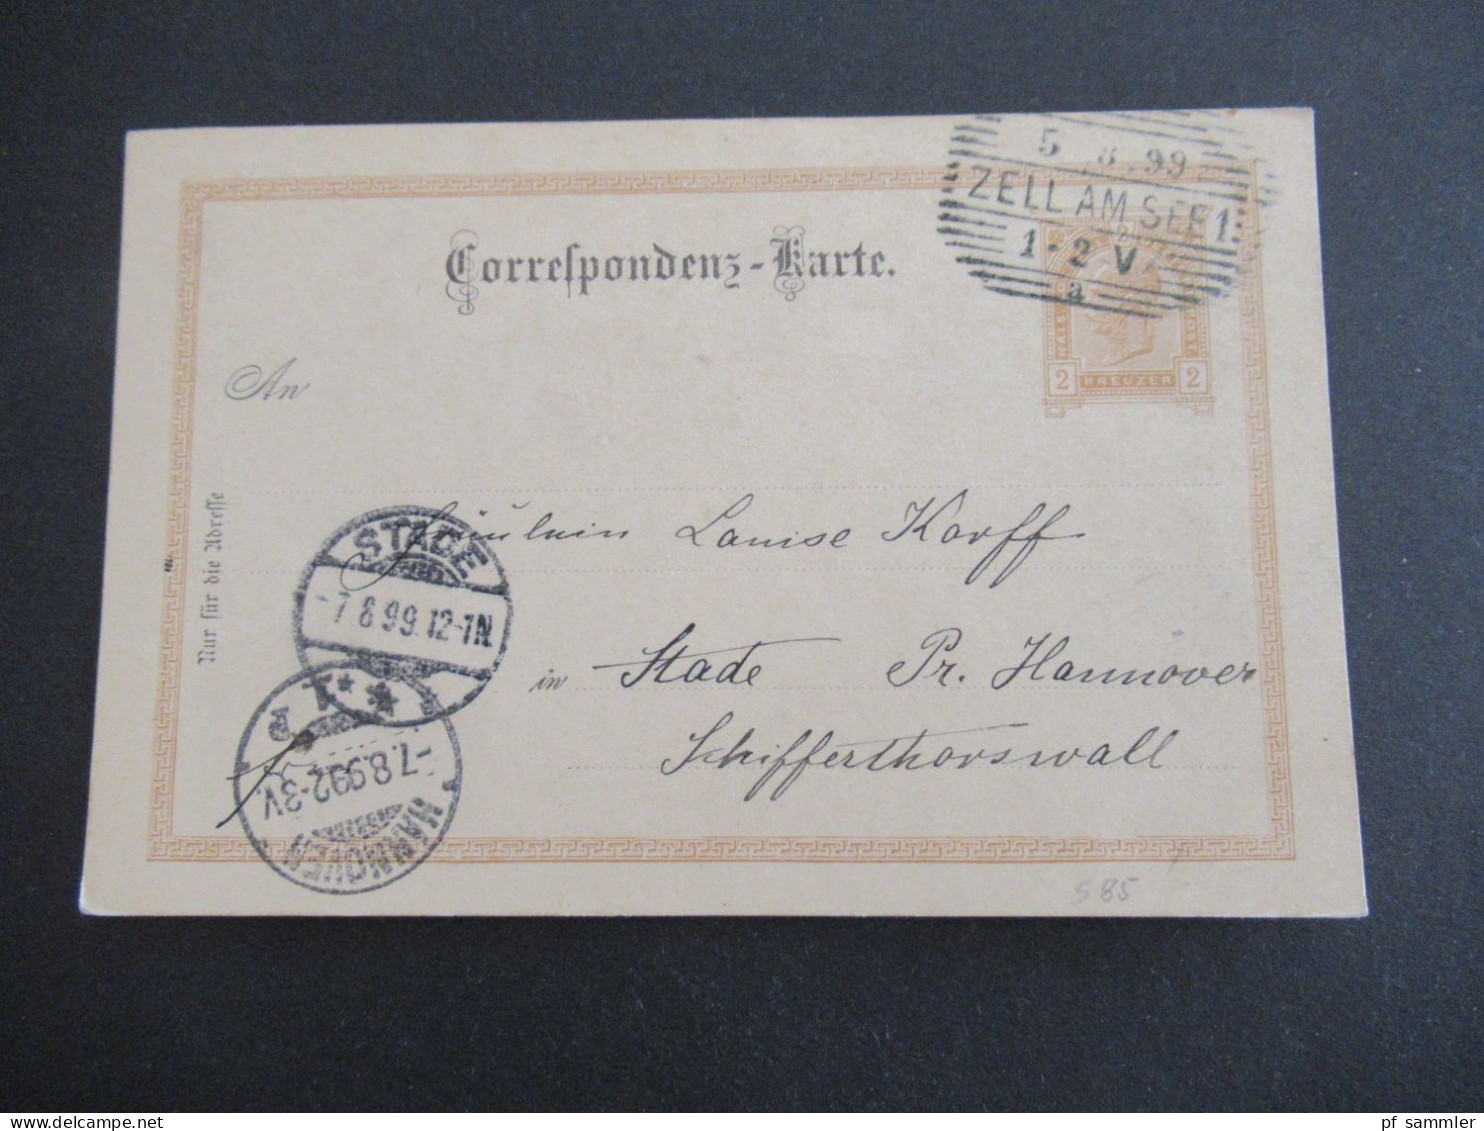 5 8 99
ZELL AM SEE 1
1-2 V
a
Correspondenz-Karte.
2 KREUZER 2
An
Nur für die Adresse
Fräulein Louise Korff
STADE
7 8.99.12-1N
in Stade Pr. Hannover
Schifferthorswall
-7.8.99.2-3V.
HANNOVER
585
pf sammler
www.delcampe.net